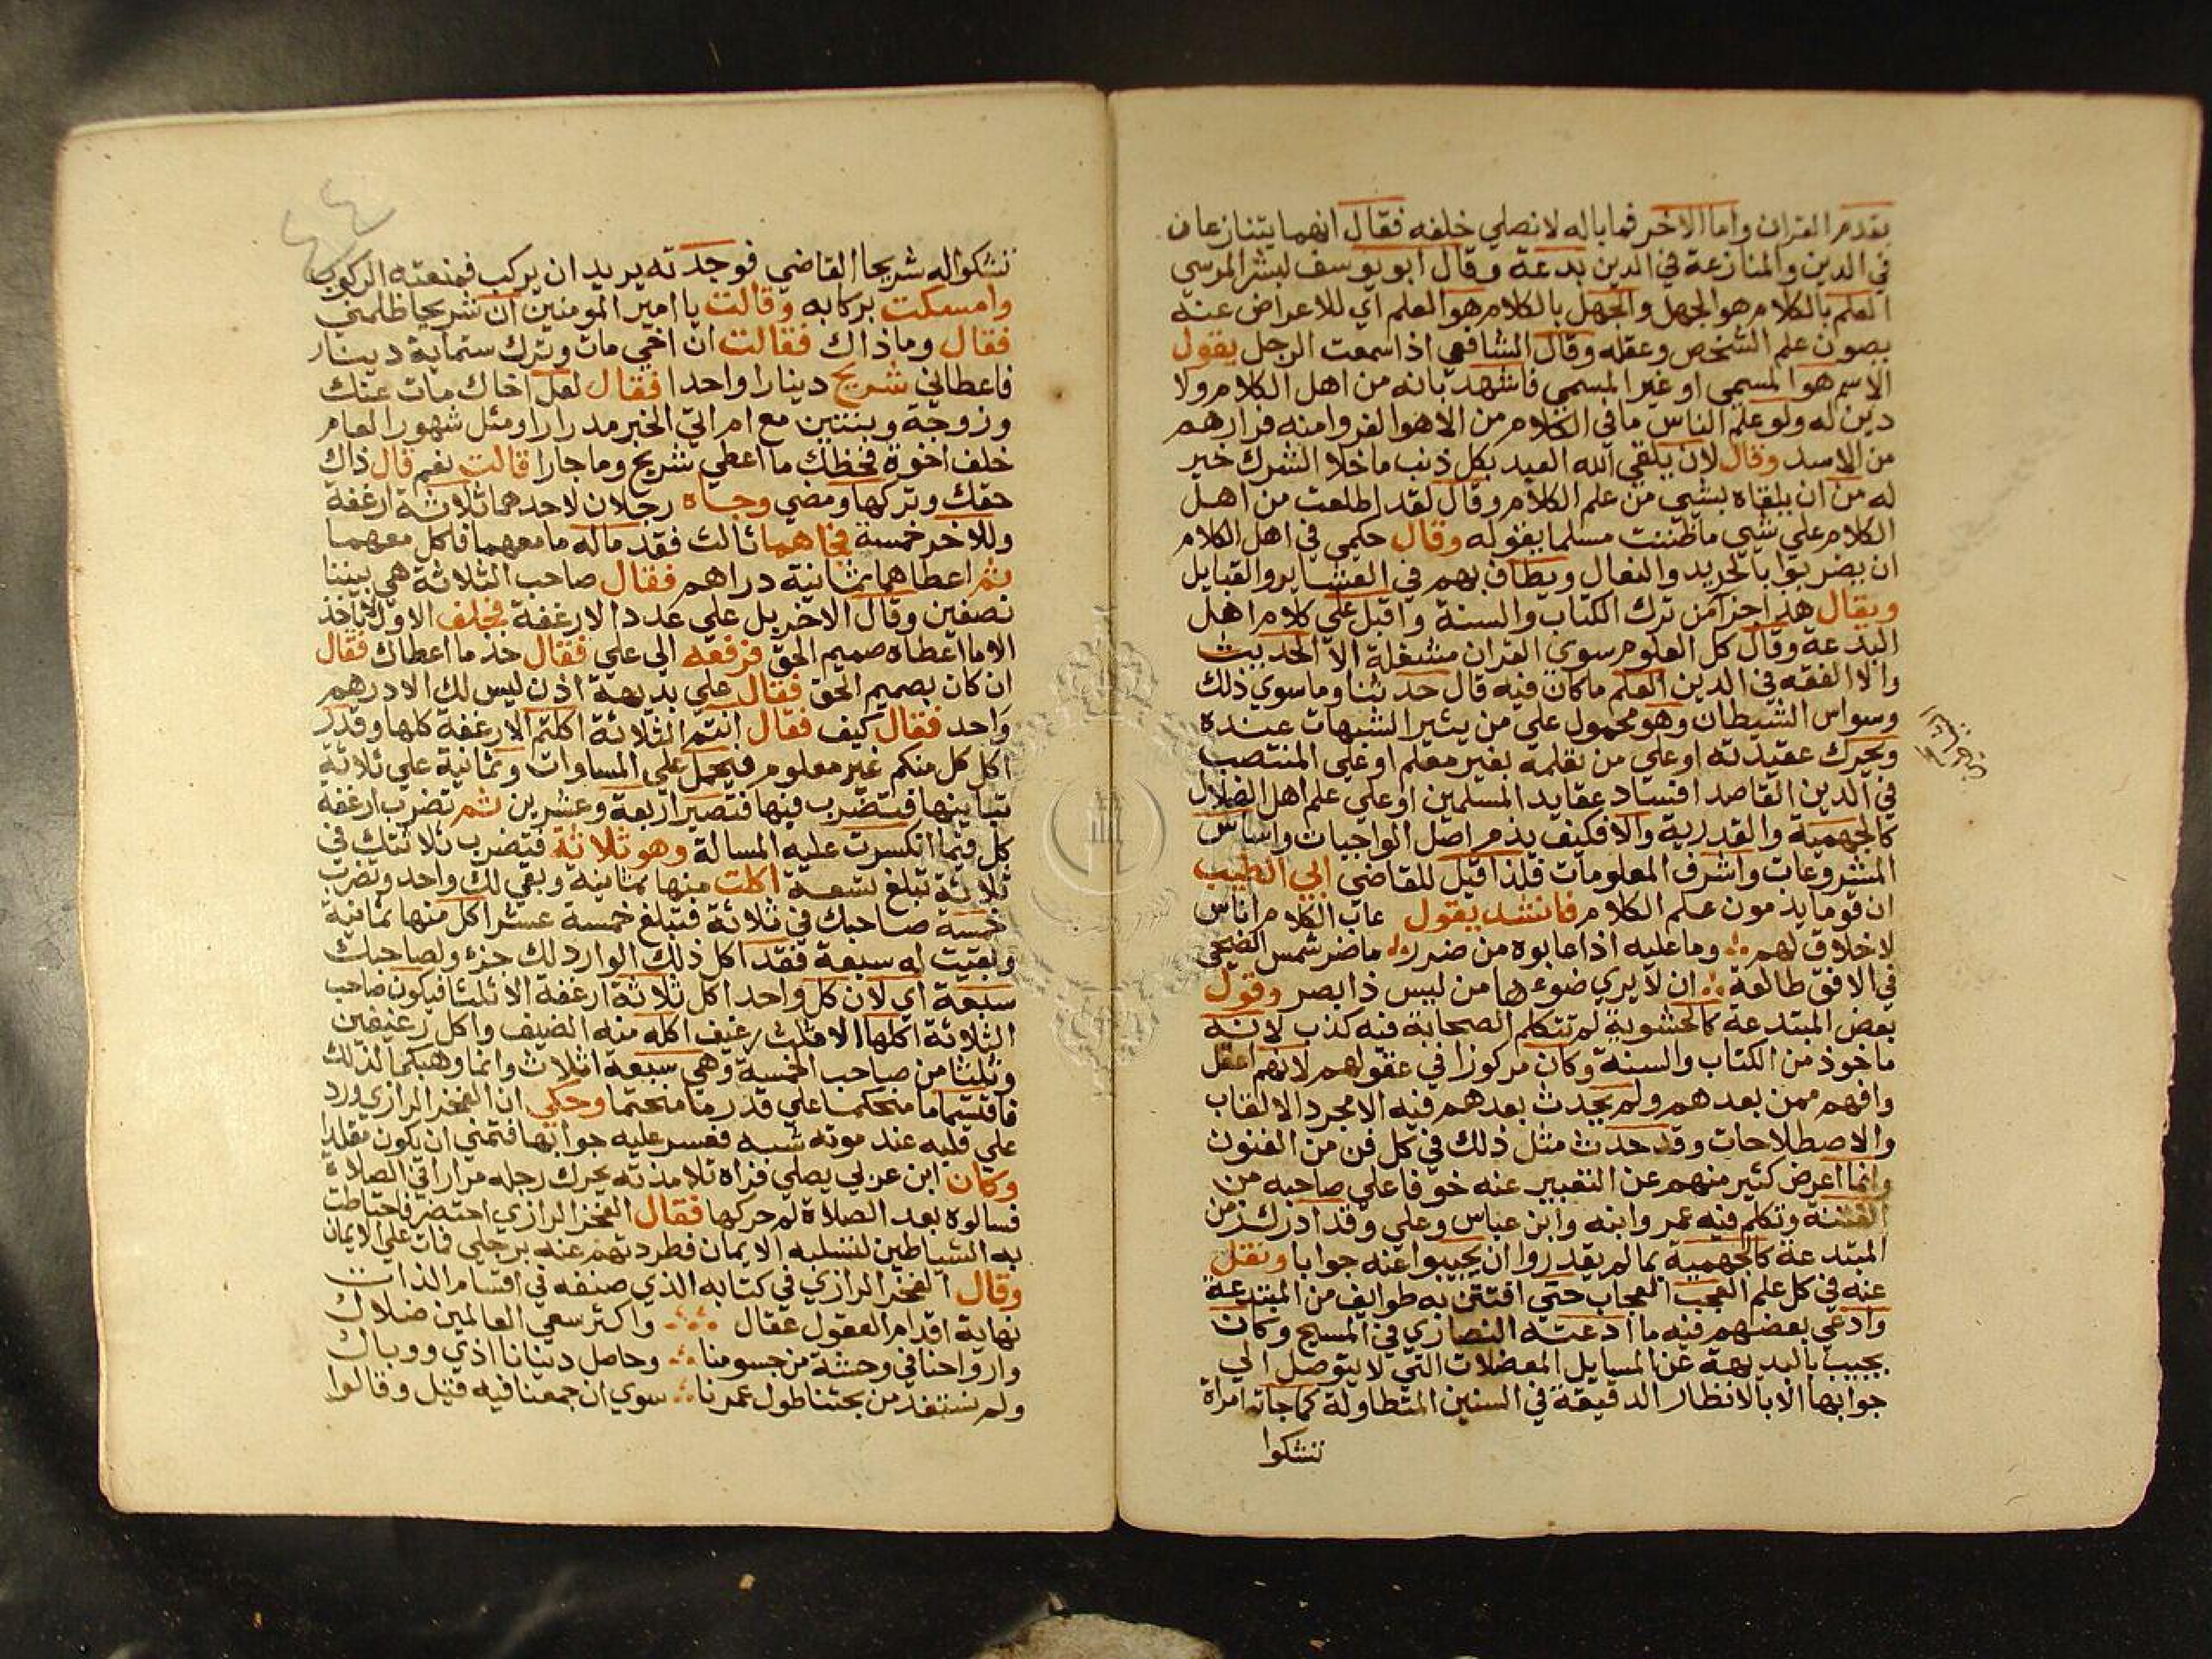 بقدم القران واما الاخر فما باله لا نصلي خلفه فقال انهما يتنازعان
في الدين والمنازعة في الدين بدعة وقال ابو يوسف لبشر المرسي
العلم بالكلام هو الجهل والجهل بالكلام هو العلم اي للاعراض عنه
يصون علم الشخص وعقله وقال الشافعي اذا سمعت الرجل يقول
الاسم هو المسمي او غير المسمي فاشهد بانه من اهل الكلام ولا
دين له ولو علم الناس ما في الكلام من الاهوا لفروا منه فرارهم
من الاسد وقال لان يلقي الله العبد بكل ذنب ما خلا الشرك خير
له من ان يلقاه بشيي من علم الكلام وقال لقد اطلعت من اهل
الكلام علي شي ما ظننت مسلما يقوله وقال حكمي في اهل الكلام
ان يضربوا بالجريد والنعال ويطاف بهم في العشاير والقبايل
ويقال هذا جزآ من ترك الكتاب والسنة واقبل علي كلام اهل
البدعة وقال كل العلوم سوي القران مشغلة الا الحديث
والا الفقه في الدين العلم ما كان فيه قال حدثنا وما سوي ذلك
وسواس الشيطان وهو محمول علي من يثير الشبهات عنده
ويحرك عقيدته او علي من تعلمه بغير معلم او علي المنتصب
في الدين القاصد افساد عقايد المسلمين او علي علم اهل الضلال
كالجهمية والقدرية والا فكيف يذم اصل الواجبات واساس
المشروعات واشرف المعلومات فلذا قيل للقاضي ابي الطيب
ان قوما يذمون علم الكلام فانشد يقول عاب الكلام اناس
لا خلاق لهم وما عليه اذا عابوه من ضرر ما ضر شمس الضحي
في الافق طالعة ان لا يري ضوءها من ليس ذا بصر وقول
بعض المبتدعة كالحشوية لم تتكلم الصحابة فيه كذب لانه
ماخوذ من الكتاب والسنة وكان مركوزا في عقولهم لانهم اعقل
وافهم ممن بعدهم ولم يحدث بعدهم فيه الا مجرد الالقاب
والاصطلاحات وقد حدث مثل ذلك في كل فن من الفنون
وانما اعرض كثير منهم عن التعبير عنه خوفا علي صاحبه من
الفتنة وتكلم فيه عمر وابنه وابن عباس وعلي وقد ادرك من
المبتدعة كالجهمية بما لم يقدروا ان يجيبوا عنه جوابا ونقل
عنه في كل علم العجب العجاب حتي افتتن به طوايف من المبتدعة
وادعي بعضهم فيه ما ادعته النصاري في المسيح وكان
يجيب بالبديهة عن المسايل المعضلات التي لا يتوصل الي
جوابها الا بالانظار الدقيقة في السنين المتطاولة كما جاته امراة
تشكوا
تشكوا له شريحا القاضي فوجدته يريد ان يركب فمنعته الركوب
وامسكت بركابه وقالت يا امير المومنين ان شريحا ظلمني
فقال وما ذاك فقالت ان اخي مات وترك ستماية دينار
فاعطاني شريح دينارا واحدا فقال لعل اخاك مات عنك
وزوجة وبنتين مع ام اتي الخبر مدرارا ومثل شهور العام
خلف اخوة فحظك ما اعطي شريح وما جارا قالت نعم قال ذاك
حقك وتركها ومضي وجاه رجلان لاحدهما ثلاثة ارغفة
وللاخر خمسة فجاهما ثالث فقد ماله ما معهما فاكل معهما
ثم اعطاهما ثمانية دراهم فقال صاحب الثلاثة هي بيننا
نصفين وقال الاخر بل علي عدد الارغفة فحلف الاول لا ياخذ
الا ما اعطاه صميم الحق فرفعه الي علي فقال خذ ما اعطاك فقال
ان كان بصميم الحق فقال علي بديهة اذن ليس لك الا درهم
واحد فقال كيف فقال انتم الثلاثة اكلتم الارغفة كلها وقدر
اكل كل منكم غير معلوم فيحمل علي المساوات وثمانية علي ثلاثة
تباينها فتضرب فيها فتصير اربعة وعشرين ثم تضرب ارغفة
كل فيما انكسرت عليه المسالة وهو ثلاثة فتضرب ثلاثتك في
ثلاثة تبلغ تسعة اكلت منها ثمانية وبقي لك واحد وتضرب
خمسة صاحبك في ثلاثة فتبلغ خمسة عشر اكل منها ثمانية
وبقيت له سبعة فقد اكل ذلك الوارد لك جزء ولصاحبك
سبعة اي لان كل واحد اكل ثلاثة ارغفة الا ثلثا فيكون صاحب
الثلاثة اكلها الا ثلث رغيف اكله منه الضيف واكل رغيفين
وثلثا من صاحب الخمسة وهي سبعة اثلاث وانما وهبكما لذلك
فاقتسما ما منحكما علي قدر ما منحتما وحكي ان الفخر الرازي ورد
علي قلبه عند موته شبه فعسر عليه جوابها فتمني ان يكون مقلدا
وكان ابن عربي يصلي فراه تلامذته يحرك رجله مرارا في الصلاة
فسالوه بعد الصلاة لم حركها فقال الفخر الرازي احتضر فاحتاطت
به الشياطين لتسلبه الايمان فطردتهم عنه برجلي فمات علي الايمان
وقال الفخر الرازي في كتابه الذي صنفه في اقسام الذات
نهاية اقدام العقول عقال واكثر سعي العالمين ضلال
وارواحنا في وحشة من جسومنا وحاصل دنيانا اذي ووبال
ولم نستفد من بحثنا طول عمرنا سوي ان جمعنا فيه قيل وقالوا